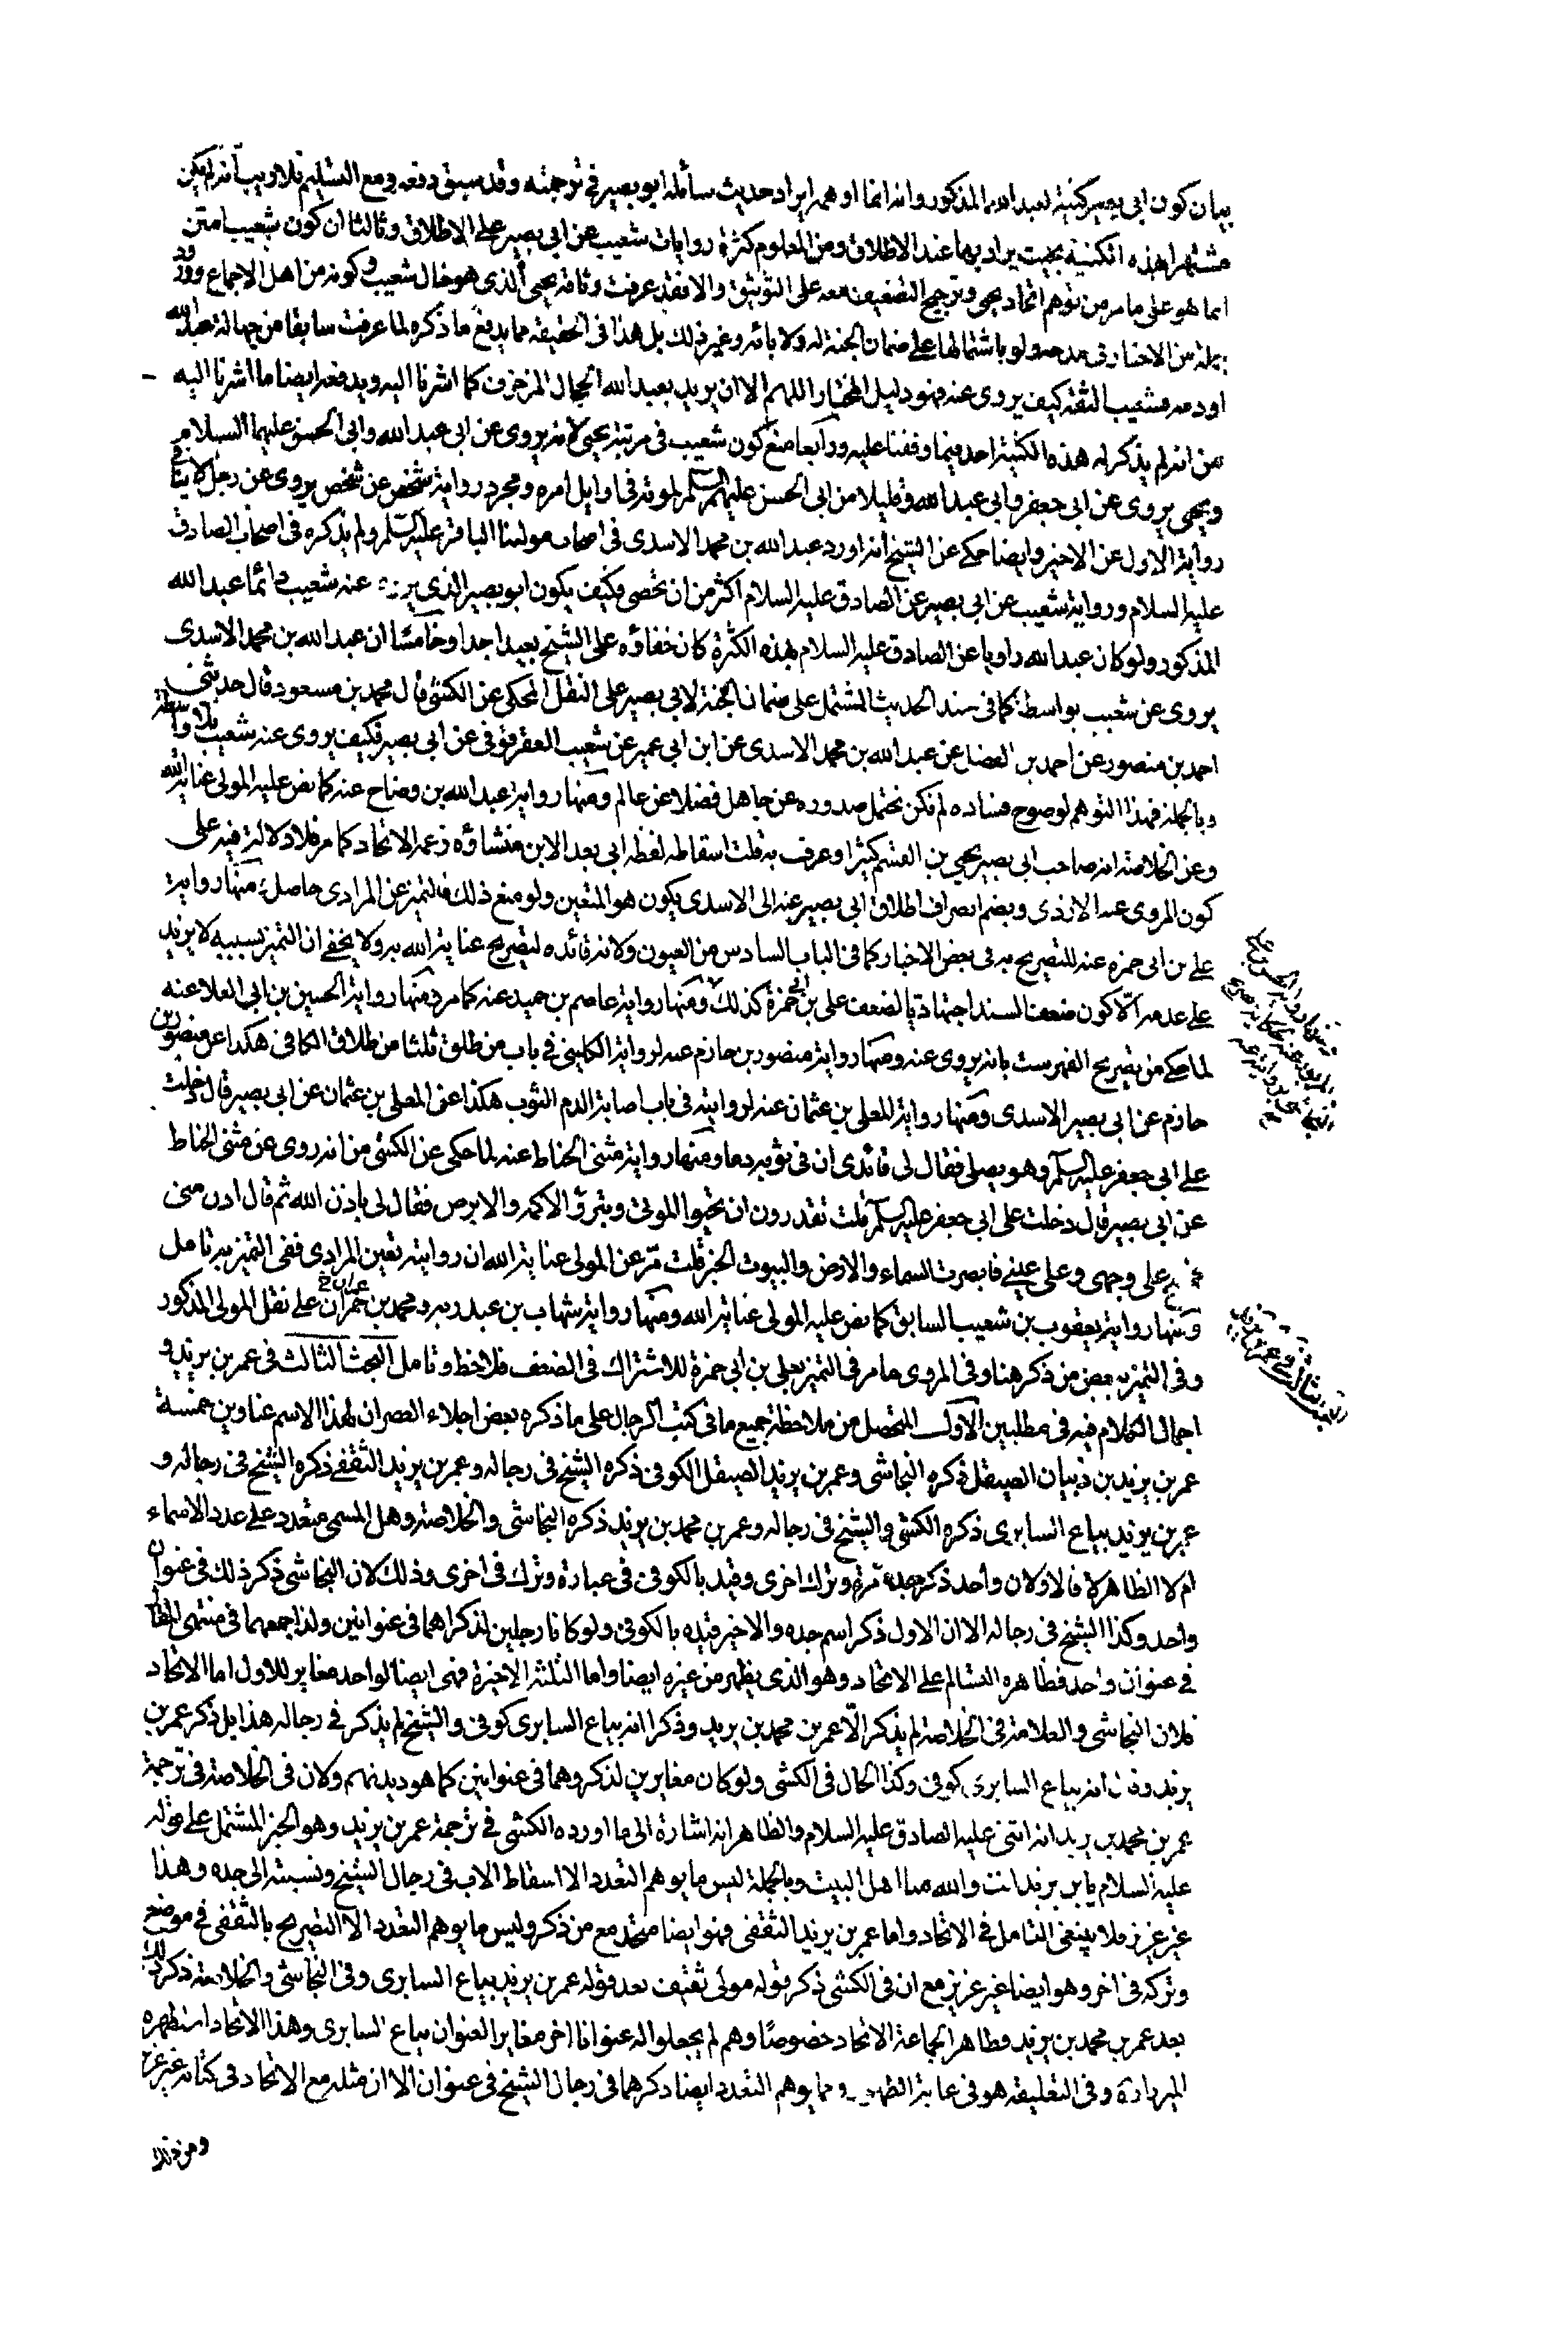 بيان كون ابى بصير كنية لعبد الله المذكور وانه انما اوهمه ايراد حديث سأله ابو بصير فى ترجمته وقد سبق دفعه ومع التسليم فلا ريب أنه لم يكن
مشتهرا بهذه الكنية بحيث يراد بها عند الاطلاق ومن المعلوم كثرة روايات شعيب عن ابى بصير على الاطلاق وثالثا ان كون شعيب امتن
انما هو على ما مر من توهم اتحاد يحيى وترجيح التضعيف معه على التوثيق والا فقد عرفت وثاقة يحيى الذى هو خال شعيب وكونه من اهل الاجماع وورود
جملة من الاخبار فى مدحه ولو باشتمالها على ضمان الجنة له ولابائه وغير ذلك بل هذا فى الحقيقة مما يدفع ما ذكره لما عرفت سابقا من جهالة عبد الله
اود مه شعيب الثقة كيف يروى عنه فهو دليل المختار اللهم الا ان يريد بعبد الله الجمال المزخرف كما اشرنا اليه ويدفعه ايضا ما اشرنا اليه
من انه لم يذكر له هذه الكنية احد فيما وقفنا عليه ورابعا منع كون شعيب فى مرتبة يحيى لانه يروى عن ابى عبد الله وابى الحسن عليهما السلام
ويحيى يروى عن ابى جعفر وابى عبد الله وقليلا من ابى الحسن عليهم السلم لموته فى اوايل امره ومجرد رواية شخص عن شخص يروى عن رجل لا ينافى
رواية الاول عن الاخير وايضا حكى عن الشيخ انه اورد عبد الله بن محمد الاسدى فى اصحاب مولينا الباقر عليه السلم ولم يذكره فى اصحاب الصادق
عليه السلام ورواية شعيب عن ابى بصير عن الصادق عليه السلام اكثر من ان تحصى فكيف يكون ابو بصير الذى يروى عنه شعيب دائما عبد الله
المذكور ولو كان عبد الله راويا عن الصادق عليه السلام بهذه الكثرة كان خفاؤه على الشيخ بعيدا جدا وخامسا ان عبد الله بن محمد الاسدى
يروى عن شعيب بواسطة كما فى سند الحديث المشتمل على ضمان الجنة لابى بصير على النقل المحكى عن الكشى قال محمد بن مسعود قال حدثنى
احمد بن منصور عن احمد بن الفضل عن عبد الله بن محمد الاسدى عن ابن ابى عمير عن شعيب العقرقوفى عن ابى بصير فكيف يروى عنه شعيب بلا واسطة
وبالجملة فهذا التوهم لوضوح فساده لم نكن نحتمل صدوره عن جاهل فضلا عن عالم ومنها رواية عبد الله بن وضاح عنه كما نص عليه المولى عناية الله
وعن الخلاصة انه صاحب ابى بصير يحيى بن القسم كثيرا وعرف به قلت اسقاطه لفظه ابى بعد الابن منشاؤه زعمه الاتحاد كما مر فلا دلالة فيه على
كون المروى عنه الازدى وبضم انصراف اطلاق ابى بصير عنه الى الاسدى يكون هو المتعين ولو منع ذلك فالتميز عن المرادى حاصل ومنها رواية
على بن ابى حمزه عنه للتصريح به فى بعض الاخبار كما فى الباب السادس من العيون ولانه قائده لتصريح عناية الله به ولا يخفى ان التميز بسببه لا يزيد
على عدمه الّا كون ضعف السند اجتهاديا لضعف على بن ابى حمزة كذلك ومنها رواية عاصم بن حميد عنه كما مر ومنها رواية الحسين بن ابى العلا عنه
لما حكى من تصريح الفهرست بانه يروى عنه ومنها رواية منصور بن حازم عنه لرواية الكلينى فى باب من طلق ثلثا من طلاق الكافى هكذا عن منصور بن
حازم عن ابى بصير الاسدى ومنها رواية المعلى بن عثمان عنه لروايته فى باب اصابة الدم الثوب هكذا عن المعلى بن عثمان عن ابى بصير قال دخلت
على ابى جعفر عليه السلم وهو يصلى فقال لى قائدى ان فى ثوبه دما ومنها رواية مثنى الحناط عنه لما حكى عن الكشى من انه روى عن مثنى الحناط
عن ابى بصير قال دخلت على ابى جعفر عليه السلم قلت تقدرون ان تحيوا الموتى وتبرؤ الاكمه والابرص فقال لى باذن الله ثم قال ادن منى
فمسح على وجهى وعلى عينى فابصرت السماء والارض والبيوت الخبر قلت مرّ عن المولى عناية الله ان روايته تعين المرادى ففى التميز به تامل
ومنها رواية يعقوب بن شعيب السابق كما نص عليه المولى عناية الله ومنها رواية شهاب بن عبد ربه ومحمد بن حمران على نقل المولى المذكور
وفى التميز ببعض من ذكر هنا وفى المروى ما مر فى التميز بعلى بن ابى حمزة للاشتراك فى الضعف فلاحظ وتامل البحث الثالث فى عمر بن يزيد و
اجمال الكلام فيه فى مطلبين الاول المتحصل من ملاحظة جميع ما فى كتب الرجال على ما ذكره بعض اجلاء العصر ان لهذا الاسم عناوين خمسة
عمر بن يزيد بن ذبيان الصيقل ذكره النجاشى وعمر بن يزيد الصيقل الكوفى ذكره الشيخ فى رجاله وعمر بن يزيد الثقفى ذكره الشيخ فى رجاله و
عمر بن يزيد بياع السابرى ذكره الكشى والشيخ فى رجاله وعمر بن محمد بن يزيد ذكره النجاشى والخلاصة وهل المسمى متعدد على عدد الاسماء
ام لا الظاهر لا فالاولان واحد ذكر جده مرة وترك اخرى وقيد بالكوفى فى عبارة وترك فى اخرى وذلك لان النجاشى ذكر ذلك فى عنوان
واحد وكذا الشيخ فى رجاله الا ان الاول ذكر اسم جده والاخير قيده بالكوفى ولو كانا رجلين لذكراهما فى عنوانين ولذا جمعهما فى منتهى المقال
فى عنوان واحد فظاهره التسالم على الاتحاد وهو الذى يظهر من غيره ايضا واما الثلثه الاخيرة فهى ايضا لواحد مغاير للاول اما الاتحاد
فلان النجاشى والعلامة فى الخلاصة لم يذكرا الّا عمر بن محمد بن يزيد وذكرا انه بياع السابرى كوفى والشيخ لم يذكر فى رجاله هذا بل ذكر عمر بن
يزيد وقال انه بياع السابرى كوفى وكذا الحال فى الكشى ولو كان مغايرين لذكروهما فى عنوانين كما هو ديدنهم ولان فى الخلاصة فى ترجمة
عمر بن محمد بن يزيد انه اثنى عليه الصادق عليه السلام والظاهر انه اشارة الى ما اورده الكشى فى ترجمة عمر بن يزيد وهو الخبر المشتمل على قوله
عليه السلام يابن يزيد انت والله منا اهل البيت وبالجملة ليس ما يوهم التعدد الا اسقاط الاب فى رجال الشيخ ونسبته الى جده وهذا
غير عزيز فلا ينبغى التامل فى الاتحاد واما عمر بن يزيد الثقفى فهو ايضا متحد مع من ذكر وليس ما يوهم التعدد الا التصريح بالثقفى فى موضع
وتركه فى اخر وهو ايضا غير عزيز مع ان فى الكشى ذكر قوله مولى ثقيف بعد قوله عمر بن يزيد بياع السابرى وفى النجاشى والخلاصة ذكر ذلك
بعد عمر بن محمد بن يزيد وظاهر الجماعة الاتحاد خصوصًا وهم لم يجعلوا له عنوانا اخر مغاير العنوان بياع السابرى وهذا الاتحاد استظهره
الميرزا ره وفى التعليقة هو فى غاية الظهور ومما يوهم التعدد ايضا ذكرهما فى رجال الشيخ فى عنوان الا ان مثله مع الاتحاد فى كتابه غير عزيز
البحث الثالث فى عمر بن يزيد